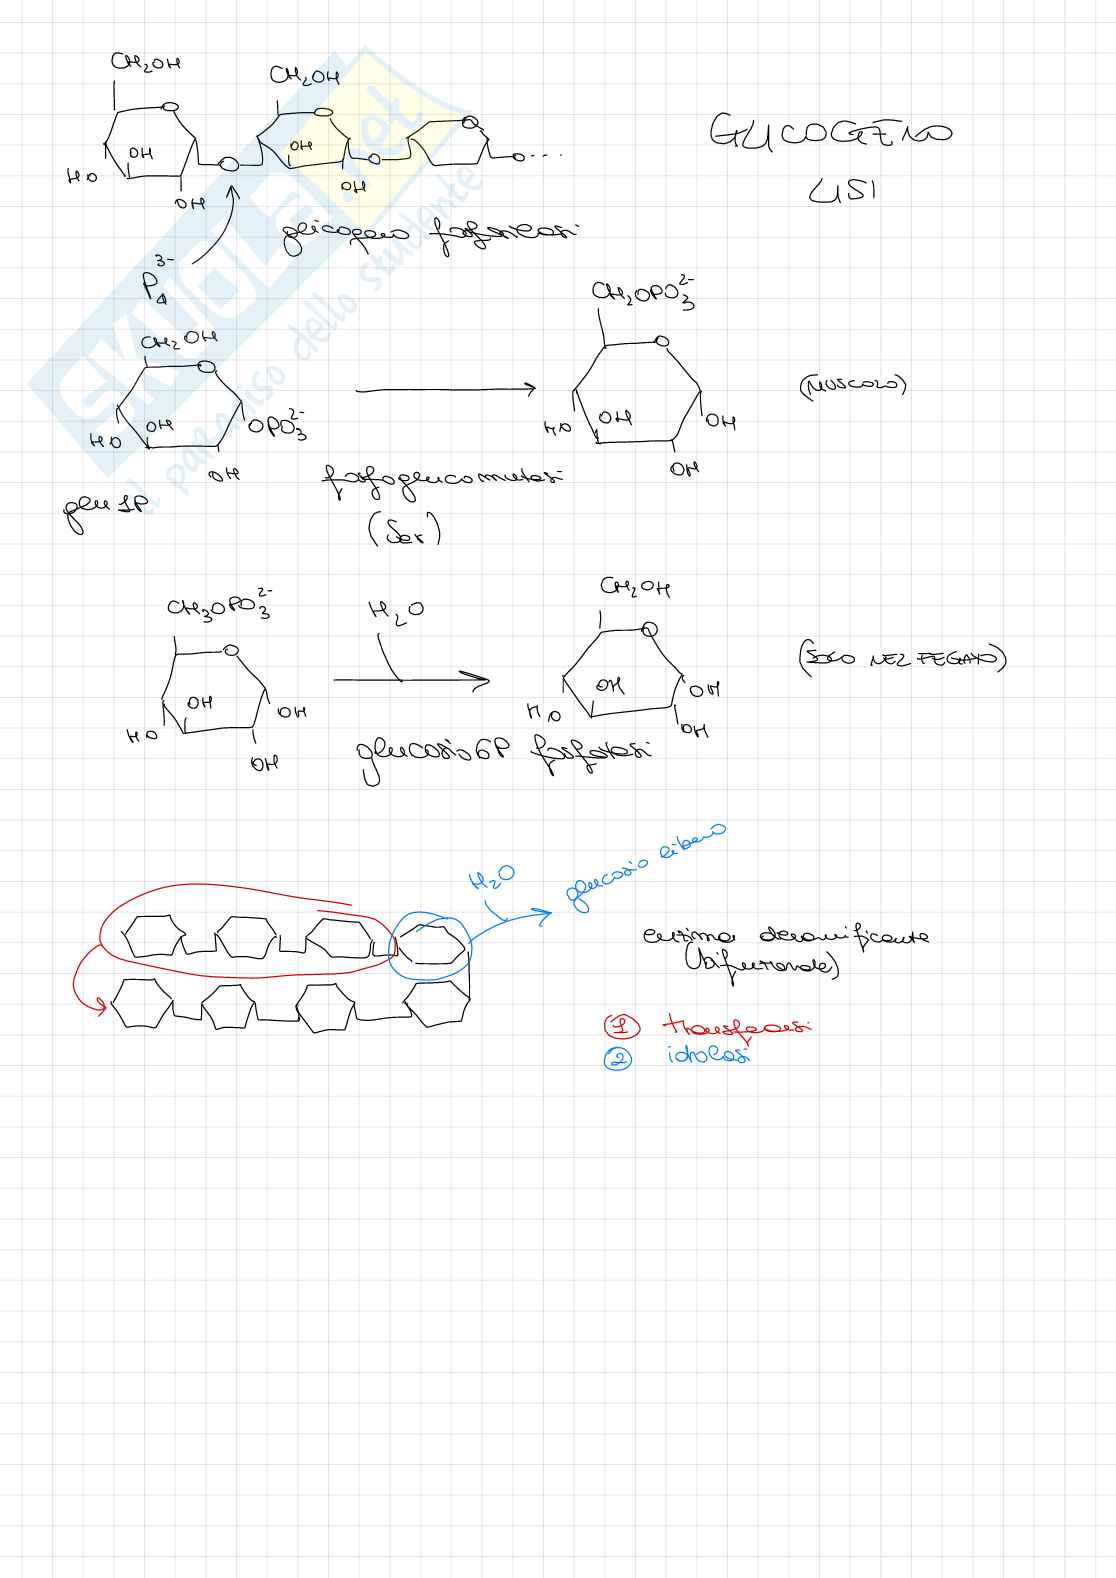 GLICOGENO
LISI
CH₂OH
CH₂OH
O
O
O
OH
OH
HO
O
O
O...
OH
OH
glicogeno fosforilasi
P₄³⁻
CH₂OH
O
OH
HO
OPO₃²⁻
OH
glu 1P
fosfoglucomutasi
(Ser)
CH₂OPO₃²⁻
O
OH
HO
OH
OH
(MUSCOLO)
CH₃OPO₃²⁻
O
OH
HO
OH
OH
H₂O
glucosio 6P fosfatasi
CH₂OH
O
OH
HO
OH
OH
(SOLO NEL FEGATO)
H₂O
glucosio libero
enzima deramificante
(bifunzionale)
① transferasi
② idrolasi
SKUOLA.net
il paradiso dello studente